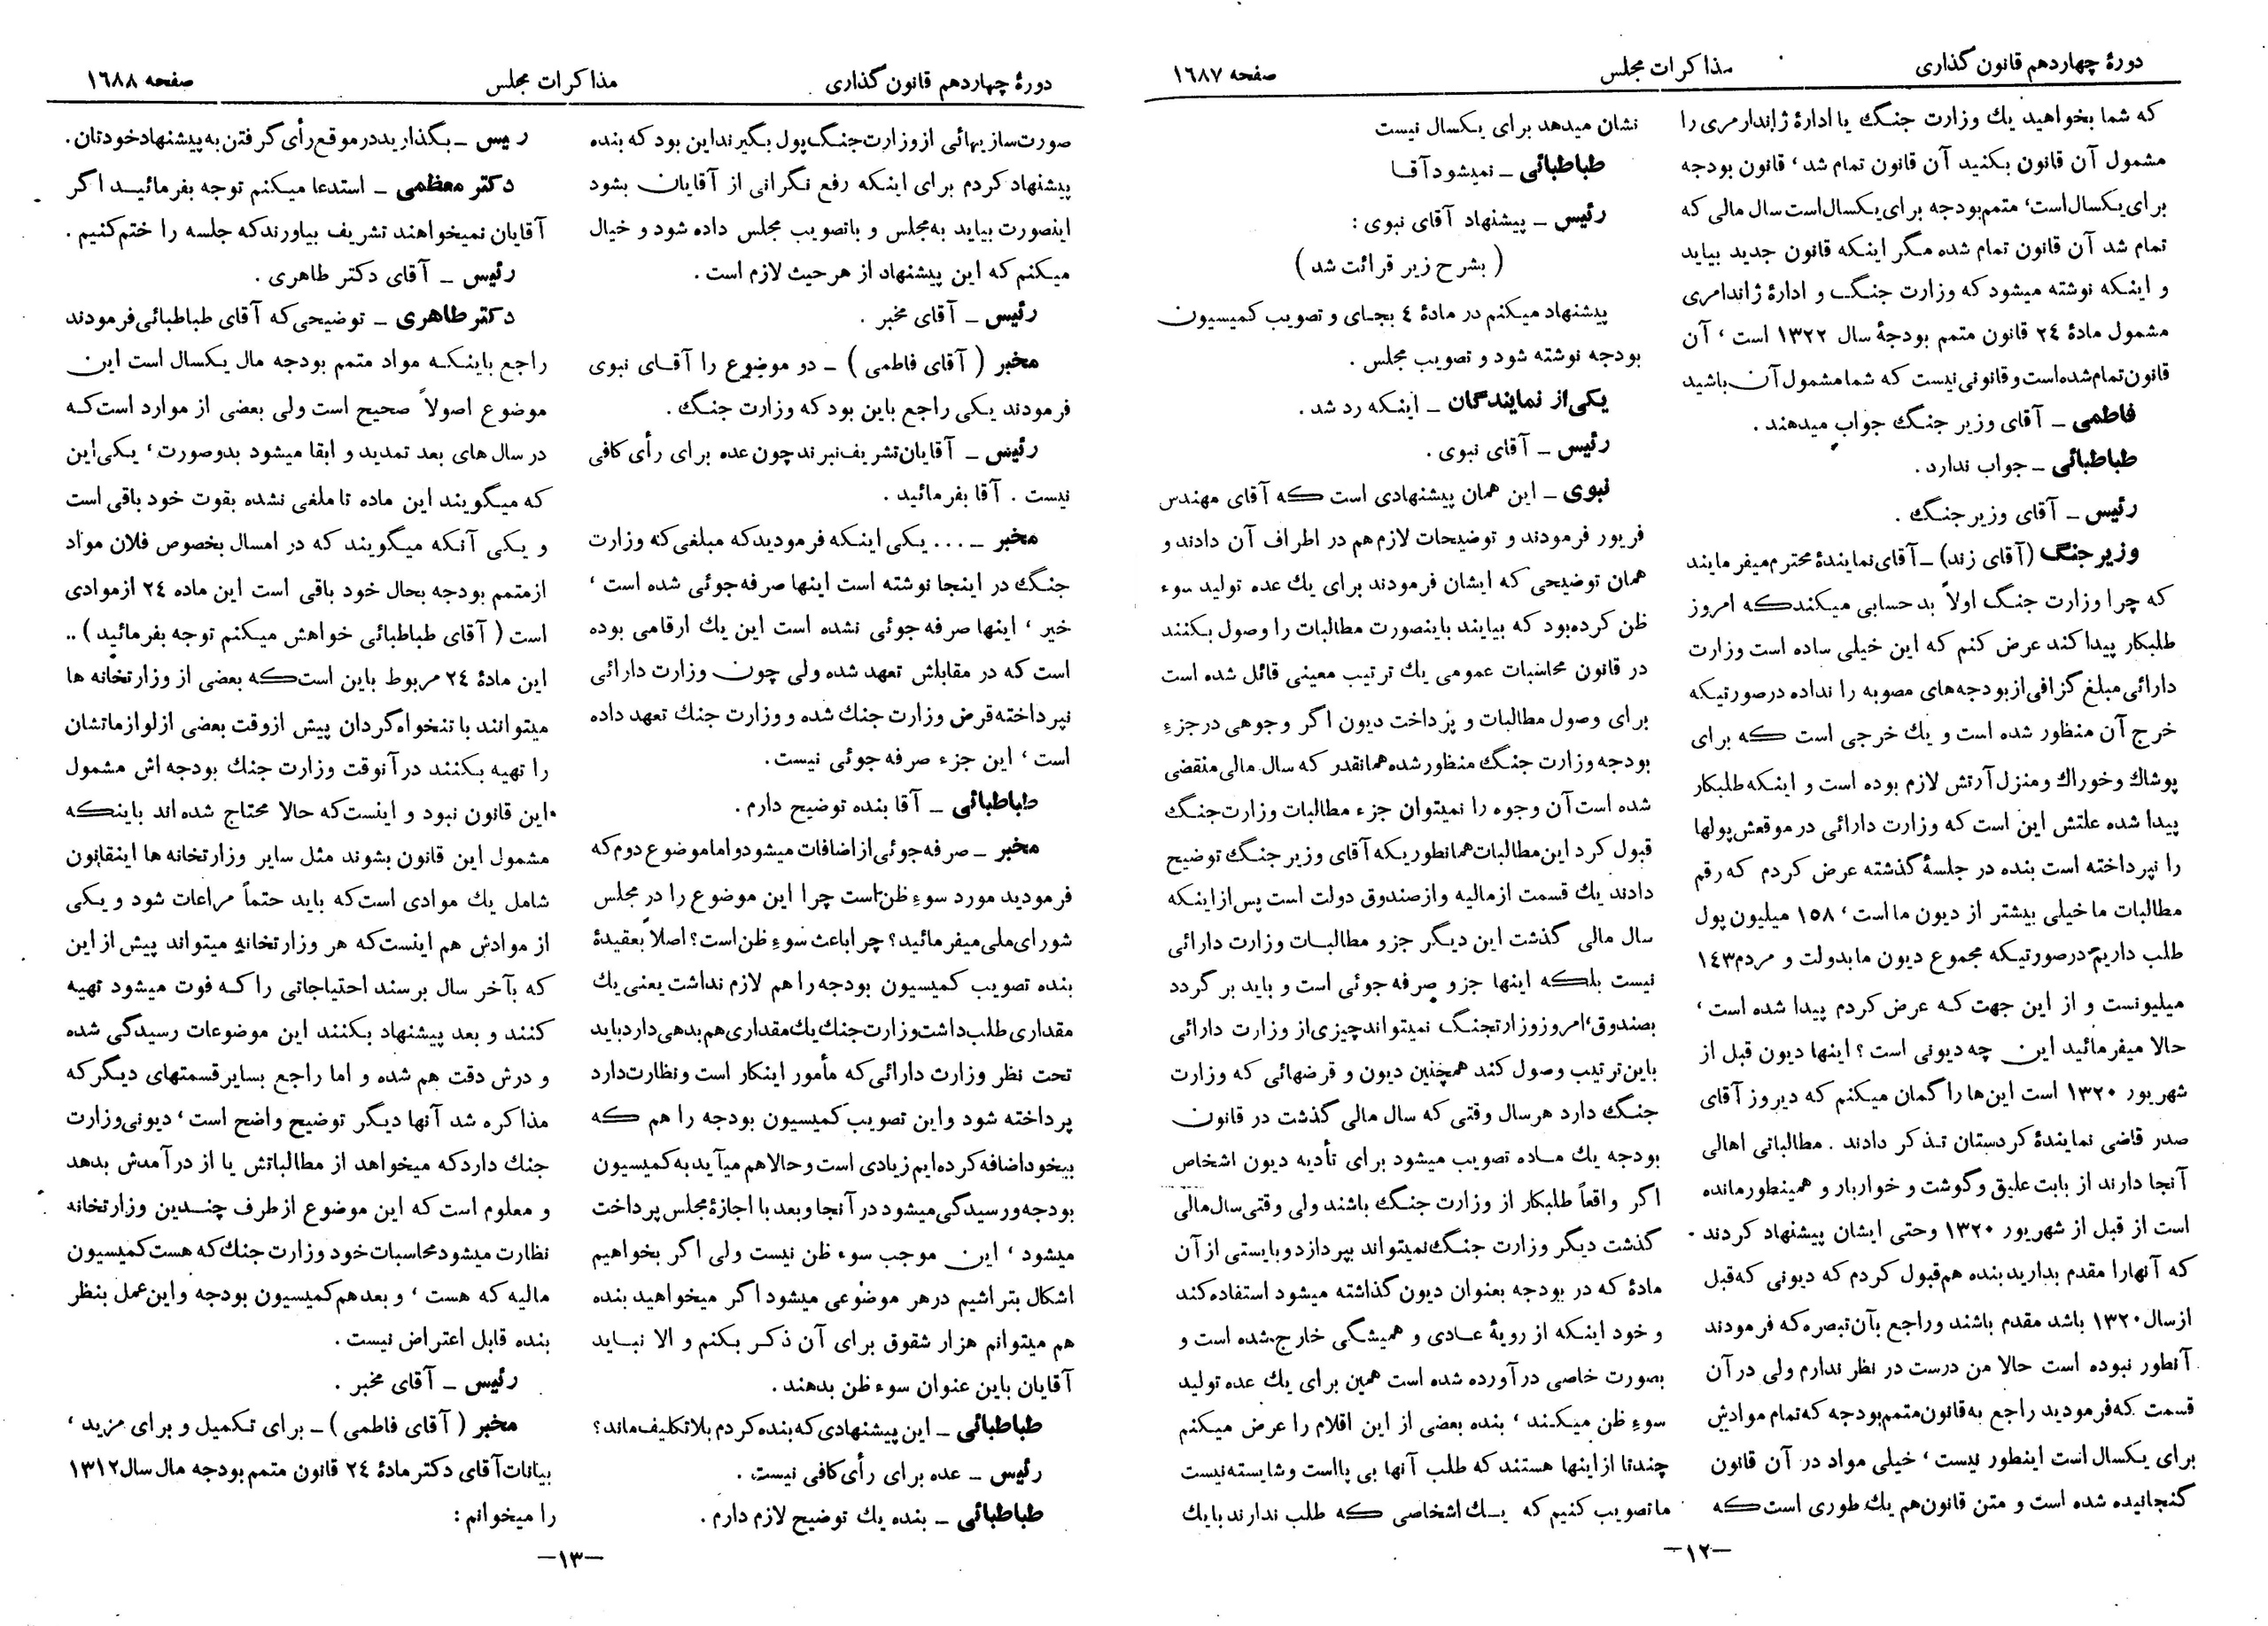 دورهٔ چهاردهم قانون گذاری
مذاکرات مجلس
صفحه ۱٦۸۷
که شما بخواهید یك وزارت جنگ یا ادارهٔ ژاندارمری را
مشمول آن قانون بکنید آن قانون تمام شد، قانون بودجه
برای یکسال است، متمم بودجه برای یکسال است سال مالی که
تمام شد آن قانون تمام شده مگر اینکه قانون جدید بیاید
و اینکه نوشته میشود که وزارت جنگ و ادارهٔ ژاندامری
مشمول مادهٔ ۲٤ قانون متمم بودجهٔ سال ۱۳۲۲ است، آن
قانون تمام شده است و قانونی نیست که شما مشمول آن باشید
فاطمی ـ آقای وزیر جنگ جواب میدهند.
طباطبائی ـ جواب ندارد.
رئیس ـ آقای وزیر جنگ.
وزیر جنگ (آقای زند) ـ آقای نمایندهٔ محترم میفرمایند
که چرا وزارت جنگ اولاً بدحسابی میکند که امروز
طلبکار پیدا کند عرض کنم که این خیلی ساده است وزارت
دارائی مبلغ گزافی از بودجه‌های مصوبه را نداده درصورتیکه
خرج آن منظور شده است و یك خرجی است که برای
پوشاك و خوراك و منزل آرتش لازم بوده است و اینکه طلبکار
پیدا شده علتش این است که وزارت دارائی در موقعش پولها
را نپرداخته است بنده در جلسهٔ گذشته عرض کردم که رقم
مطالبات ما خیلی بیشتر از دیون ما است، ۱۵۸ میلیون پول
طلب داریم درصورتیکه مجموع دیون ما بدولت و مردم ۱٤۳
میلیونست و از این جهت که عرض کردم پیدا شده است،
حالا میفرمائید این چه دیونی است؟ اینها دیون قبل از
شهریور ۱۳۲۰ است این‌ها را گمان میکنم که دیروز آقای
صدر قاضی نمایندهٔ کردستان تذکر دادند. مطالباتی اهالی
آنجا دارند از بابت علیق و گوشت و خواربار و همینطور مانده
است از قبل از شهریور ۱۳۲۰ وحتی ایشان پیشنهاد کردند
که آنهارا مقدم بدارید بنده هم قبول کردم که دیونی که قبل
از سال ۱۳۲۰ باشد مقدم باشند و راجع بآن تبصره که فرمودند
آنطور نبوده است حالا من درست در نظر ندارم ولی در آن
قسمت که فرمودید راجع به قانون متمم بودجه که تمام موادش
برای یکسال است اینطور نیست، خیلی مواد در آن قانون
گنجانیده شده است و متن قانون هم یك طوری است که
نشان میدهد برای یکسال نیست
طباطبائی ـ نمیشود آقا
رئیس ـ پیشنهاد آقای نبوی:
(بشرح زیر قرائت شد)
پیشنهاد میکنم در مادهٔ ٤ بجای و تصویب کمیسیون
بودجه نوشته شود و تصویب مجلس.
یکی از نمایندگان ـ اینکه رد شد.
رئیس ـ آقای نبوی.
نبوی ـ این همان پیشنهادی است که آقای مهندس
فریور فرمودند و توضیحات لازم هم در اطراف آن دادند و
همان توضیحی که ایشان فرمودند برای یك عده تولید سوء
ظن کرده بود که بیایند باینصورت مطالبات را وصول بکنند
در قانون محاسبات عمومی یك ترتیب معینی قائل شده است
برای وصول مطالبات و پرداخت دیون اگر وجوهی در جزء
بودجه وزارت جنگ منظور شده همانقدر که سال مالی منقضی
شده است آن وجوه را نمیتوان جزء مطالبات وزارت جنگ
قبول کرد این مطالبات همانطوریکه آقای وزیر جنگ توضیح
دادند یك قسمت از مالیه و از صندوق دولت است پس از اینکه
سال مالی گذشت این دیگر جزو مطالبات وزارت دارائی
نیست بلکه اینها جزو صرفه جوئی است و باید بر گردد
بصندوق، امروز وزارتجنگ نمیتواند چیزی از وزارت دارائی
باین ترتیب وصول کند همچنین دیون و قرضهائی که وزارت
جنگ دارد هر سال وقتی که سال مالی گذشت در قانون
بودجه یك ماده تصویب میشود برای تأدیه دیون اشخاص
اگر واقعاً طلبکار از وزارت جنگ باشند ولی وقتی سال مالی
گذشت دیگر وزارت جنگ نمیتواند بپردازد و بایستی از آن
مادهٔ که در بودجه بعنوان دیون گذاشته میشود استفاده کند
و خود اینکه از رویهٔ عادی و همیشگی خارج شده است و
بصورت خاصی در آورده شده است همین برای یك عده تولید
سوء ظن میکند، بنده بعضی از این اقلام را عرض میکنم
چندتا از اینها هستند که طلب آنها بی پااست و شایسته نیست
ما تصویب کنیم که یك اشخاصی که طلب ندارند با یك
ـ۱۲ـ
دورهٔ چهاردهم قانون گذاری
مذاکرات مجلس
صفحه ۱٦۸۸
صورت سازیهائی از وزارت جنگ پول بگیرند این بود که بنده
پیشنهاد کردم برای اینکه رفع نگرانی از آقایان بشود
اینصورت بیاید به مجلس و با تصویب مجلس داده شود و خیال
میکنم که این پیشنهاد از هر حیث لازم است.
رئیس ـ آقای مخبر.
مخبر (آقای فاطمی) ـ دو موضوع را آقای نبوی
فرمودند یکی راجع باین بود که وزارت جنگ.
رئیس ـ آقایان تشریف نبرند چون عده برای رأی کافی
نیست. آقا بفرمائید.
مخبر ـ ... یکی اینکه فرمودید که مبلغی که وزارت
جنگ در اینجا نوشته است اینها صرفه جوئی شده است،
خیر، اینها صرفه جوئی نشده است این یك ارقامی بوده
است که در مقابلش تعهد شده ولی چون وزارت دارائی
نپرداخته قرض وزارت جنك شده و وزارت جنك تعهد داده
است، این جزء صرفه جوئی نیست.
طباطبائی ـ آقا بنده توضیح دارم.
مخبر ـ صرفه جوئی از اضافات میشود و اما موضوع دوم که
فرمودید مورد سوء ظن است چرا این موضوع را در مجلس
شورای ملی میفرمائید؟ چرا باعث سوء ظن است؟ اصلاً بعقیدهٔ
بنده تصویب کمیسیون بودجه را هم لازم نداشت یعنی یك
مقداری طلب داشت وزارت جنك یك مقداری هم بدهی دارد باید
تحت نظر وزارت دارائی که مأمور اینکار است و نظارت دارد
پرداخته شود و این تصویب کمیسیون بودجه را هم که
بیخود اضافه کرده‌ایم زیادی است و حالا هم میآید به کمیسیون
بودجه و رسیدگی میشود در آنجا و بعد با اجازهٔ مجلس پرداخت
میشود، این موجب سوء ظن نیست ولی اگر بخواهیم
اشکال بتراشیم در هر موضوعی میشود اگر میخواهید بنده
هم میتوانم هزار شقوق برای آن ذکر بکنم و الا نباید
آقایان باین عنوان سوء ظن بدهند.
طباطبائی ـ این پیشنهادی که بنده کردم بلا تکلیف ماند؟
رئیس ـ عده برای رأی کافی نیست.
طباطبائی ـ بنده یك توضیح لازم دارم.
ریس ـ بگذارید در موقع رأی گرفتن به پیشنهاد خودتان.
دکتر معظمی ـ استدعا میکنم توجه بفرمائید اگر
آقایان نمیخواهند تشریف بیاورند که جلسه را ختم کنیم.
رئیس ـ آقای دکتر طاهری.
دکتر طاهری ـ توضیحی که آقای طباطبائی فرمودند
راجع باینکه مواد متمم بودجه مال یکسال است این
موضوع اصولاً صحیح است ولی بعضی از موارد است که
در سال های بعد تمدید و ابقا میشود بدوصورت، یکی این
که میگویند این ماده تا ملغی نشده بقوت خود باقی است
و یکی آنکه میگویند که در امسال بخصوص فلان مواد
از متمم بودجه بحال خود باقی است این ماده ۲٤ از موادی
است (آقای طباطبائی خواهش میکنم توجه بفرمائید) ..
این مادهٔ ۲٤ مربوط باین است که بعضی از وزارتخانه ها
میتوانند با تنخواه گردان پیش از وقت بعضی از لوازماتشان
را تهیه بکنند در آنوقت وزارت جنك بودجه اش مشمول
این قانون نبود و اینست که حالا محتاج شده اند باینکه
مشمول این قانون بشوند مثل سایر وزارتخانه ها اینقانون
شامل یك موادی است که باید حتماً مراعات شود و یکی
از موادش هم اینست که هر وزارتخانه میتواند پیش از این
که بآخر سال برسند احتیاجاتی را که فوت میشود تهیه
کنند و بعد پیشنهاد بکنند این موضوعات رسیدگی شده
و درش دقت هم شده و اما راجع بسایر قسمتهای دیگر که
مذاکره شد آنها دیگر توضیح واضح است، دیونی وزارت
جنك دارد که میخواهد از مطالباتش یا از درآمدش بدهد
و معلوم است که این موضوع از طرف چندین وزارتخانه
نظارت میشود محاسبات خود وزارت جنك که هست کمیسیون
مالیه که هست، و بعد هم کمیسیون بودجه و این عمل بنظر
بنده قابل اعتراض نیست.
رئیس ـ آقای مخبر.
مخبر (آقای فاطمی) ـ برای تکمیل و برای مزید،
بیانات آقای دکتر مادهٔ ۲٤ قانون متمم بودجه مال سال ۱۳۱۲
را میخوانم:
ـ۱۳ـ